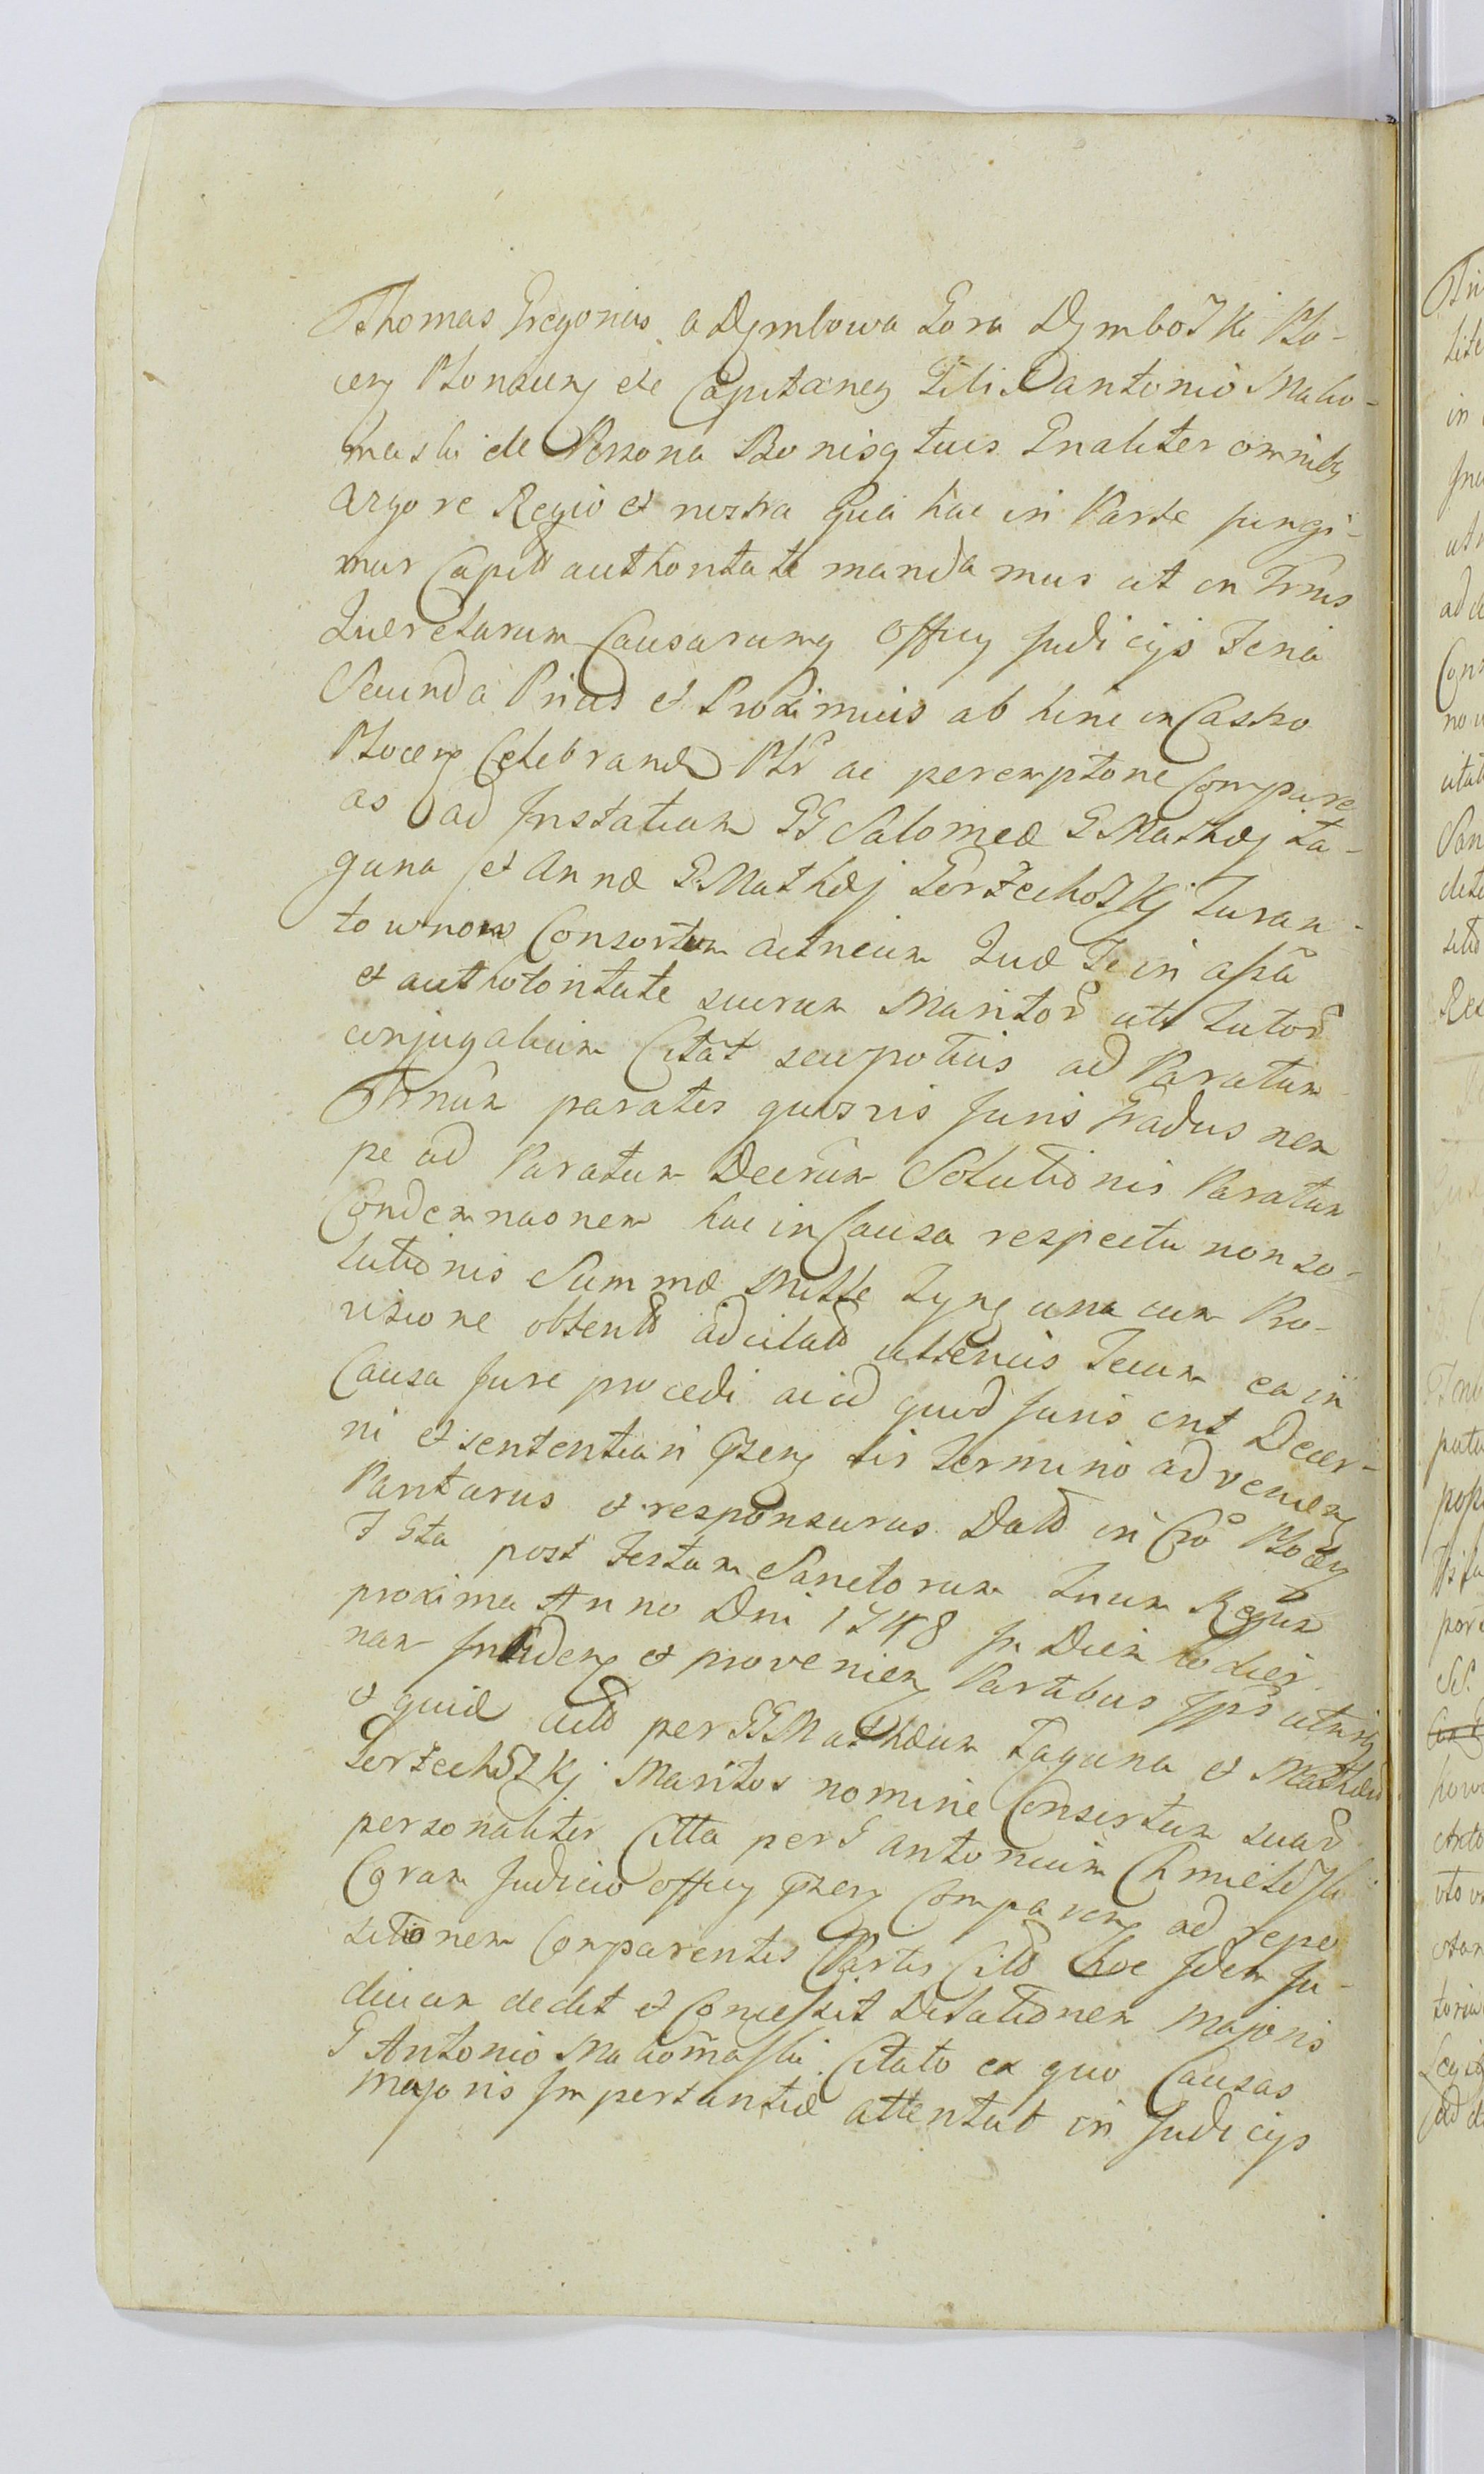 Thomas Gregorius a Dymbowa Gora DymboŻki Plo-
ceñ Plonsceñ etc Capitaneg Tibi G antonio Malio-
maski de Persona Bonisq tuis Gnaliter omnibg
Authore Regio et nostra qua hac in Parte fungi-
mur Capitt authoritate mandamus ut in Trnis
Querelarum Causarumq officy Judicijs Feria
Secunda Prius et Proximius ab hinc in Castro
Ploceñ Celebrand Pltr ac peremptorie Compare
as ad Instatiam GG Salomeæ G Mathæj Ła-
guna et Annæ G Mathæj GorżechoŻkj Turan-
townow Consortum actricum Quæ Te in assa
et autthotoritate suorum Maritor uti Tutor
conjugalium Citat seu potius ad Paratum
Trnum parates quosvis Juris Gradus nem
pe ad Paratum Decrum Solutionis Paratam
Condemnaonem hac in Causa respectu non so-
lutionis Summæ Mille Tynf una cum Pro-
visione obtentt adcitatt ulterius Tecum ea in
Causa Jure procedi ac id quod Juris erit Decer-
ni et sententiari Pnzeñ tis Termino adveniẽñ
Pariturus et responsurus Datt in Cro Ploceñ
F Gta post Festum Sanctorum Trium Regum
proxima Anno Dni 1748 In Diem hodier
nam Incideñ et provenieñ Partibus Ipsis utrisq
et quidē actt per GG Mathæum Łaguna et Mathæum
GorżechoŻkj Maritos nomine Consortum suar
personaliter Citta per G antonium ChmieloŻki
Coram Judicio officy Pnzeñ Compareñ ad repo
sitionem Comparentis Partis Citt hoc Idem Ju-
dicium dedit et Concessit Dilationem Majoris
G Antonio Maliomaski Citato ex quo Causas
Majoris Impertantiæ attentat in Judicijs